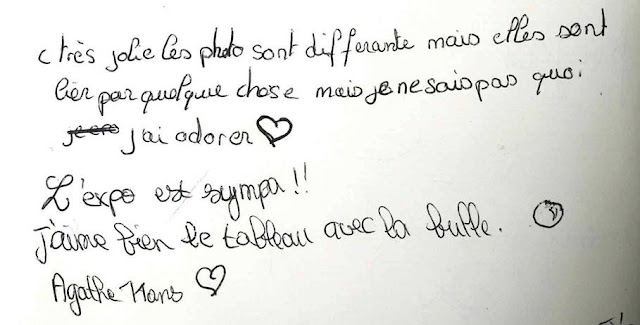 c très jolie les photo sont differante mais elles sont
lier par quelque chose mais je ne sais pas quoi
j'ai adorer ♡
L'expo est sympa !!
J'aime bien le tableau avec la bulle.
Agathe Mans ♡